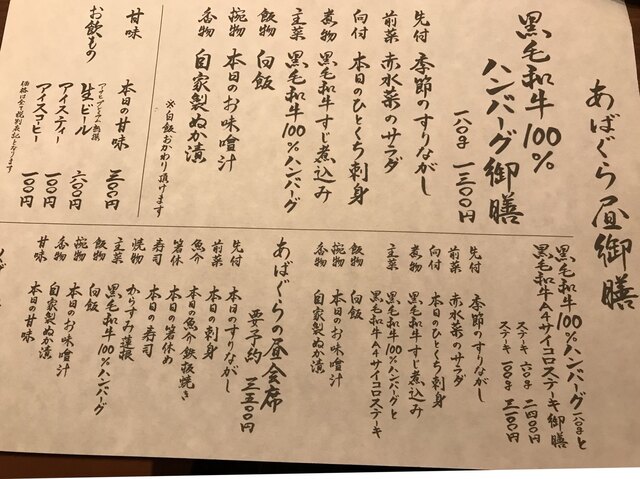 あばぐら昼御膳
黒毛和牛100%
ハンバーグ御膳
一八〇g 一三〇〇円
先付 季節のすりながし
前菜 赤水菜のサラダ
向付 本日のひとくち刺身
煮物 黒毛和牛すじ煮込み
主菜 黒毛和牛100%ハンバーグ
飯物 白飯
椀物 本日のお味噌汁
香物 自家製ぬか漬
※白飯おかわり頂けます
甘味 本日の甘味 三〇〇円
お飲もの
アサヒプレミアム熟撰
生ビール 六〇〇円
アイスティー 一〇〇円
アイスコーヒー 一〇〇円
価格は全て税別表記となります
黒毛和牛100%ハンバーグ一八〇gと
黒毛和牛A4サイコロステーキ御膳
ステーキ 六〇g 二四〇〇円
ステーキ 一〇〇g 三一〇〇円
先付 季節のすりながし
前菜 赤水菜のサラダ
向付 本日のひとくち刺身
煮物 黒毛和牛すじ煮込み
主菜 黒毛和牛100%ハンバーグと
黒毛和牛A4サイコロステーキ
飯物 白飯
椀物 本日のお味噌汁
香物 自家製ぬか漬
あばぐらの昼会席
要予約 三五〇〇円
先付 本日のすりながし
前菜 本日の刺身
魚介 本日の魚介鉄板焼き
箸休 本日の箸休め
寿司 本日の寿司
焼物 からすみ蓮根
主菜 黒毛和牛100%ハンバーグ
飯物 白飯
椀物 本日のお味噌汁
香物 自家製ぬか漬
甘味 本日の甘味